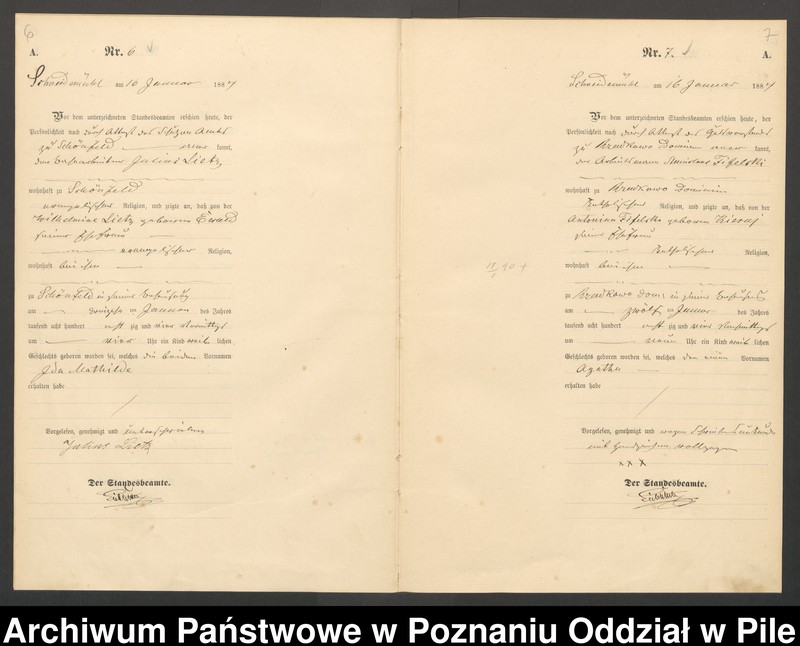 6
A.
Nr. 6
Schneidemühl am 16 Januar 1884
Vor dem unterzeichneten Standesbeamten erschien heute, der
Persönlichkeit nach durch Attest des Schulzen Amts
zu Schönfeld kannt,
der Julius Lietz
wohnhaft zu Schönfeld
evangelischer Religion, und zeigte an, daß von der
Wilhelmine Lietz geborenen Ewald
seiner Ehefrau
evangelischer Religion,
wohnhaft bei ihm
zu Schönfeld in seiner Behausung
am dreizehn ten Januar des Jahres
tausend acht hundert acht zig und vier Vormittags
um vier Uhr ein Kind weib lichen
Geschlechts geboren worden sei, welches die beiden Vornamen
Ida Mathilde
erhalten habe
Vorgelesen, genehmigt und unterschrieben
Julius Lietz
Der Standesbeamte.
18/1 90 +
7
Nr. 7.
A.
Schneidemühl am 16 Januar 1884
Vor dem unterzeichneten Standesbeamten erschien heute, der
Persönlichkeit nach durch Attest des Gutsvorstandes
zu Dominium kannt,
der Arbeitsmann Stanislaus Fifelski
wohnhaft zu Dominium
katholischer Religion, und zeigte an, daß von der
Antonina Fifelska geborenen
seiner Ehefrau
katholischer Religion,
wohnhaft bei ihm
zu Dom: in seiner Behausung
am zwölf ten Januar des Jahres
tausend acht hundert acht zig und vier Nachmittags
um neun Uhr ein Kind weib lichen
Geschlechts geboren worden sei, welches den einen Vornamen
Agathe
erhalten habe
Vorgelesen, genehmigt und wegen Schreibensunkunde
mit Handzeichen vollzogen
x x x
Der Standesbeamte.
Archiwum Państwowe w Poznaniu Oddział w Pile